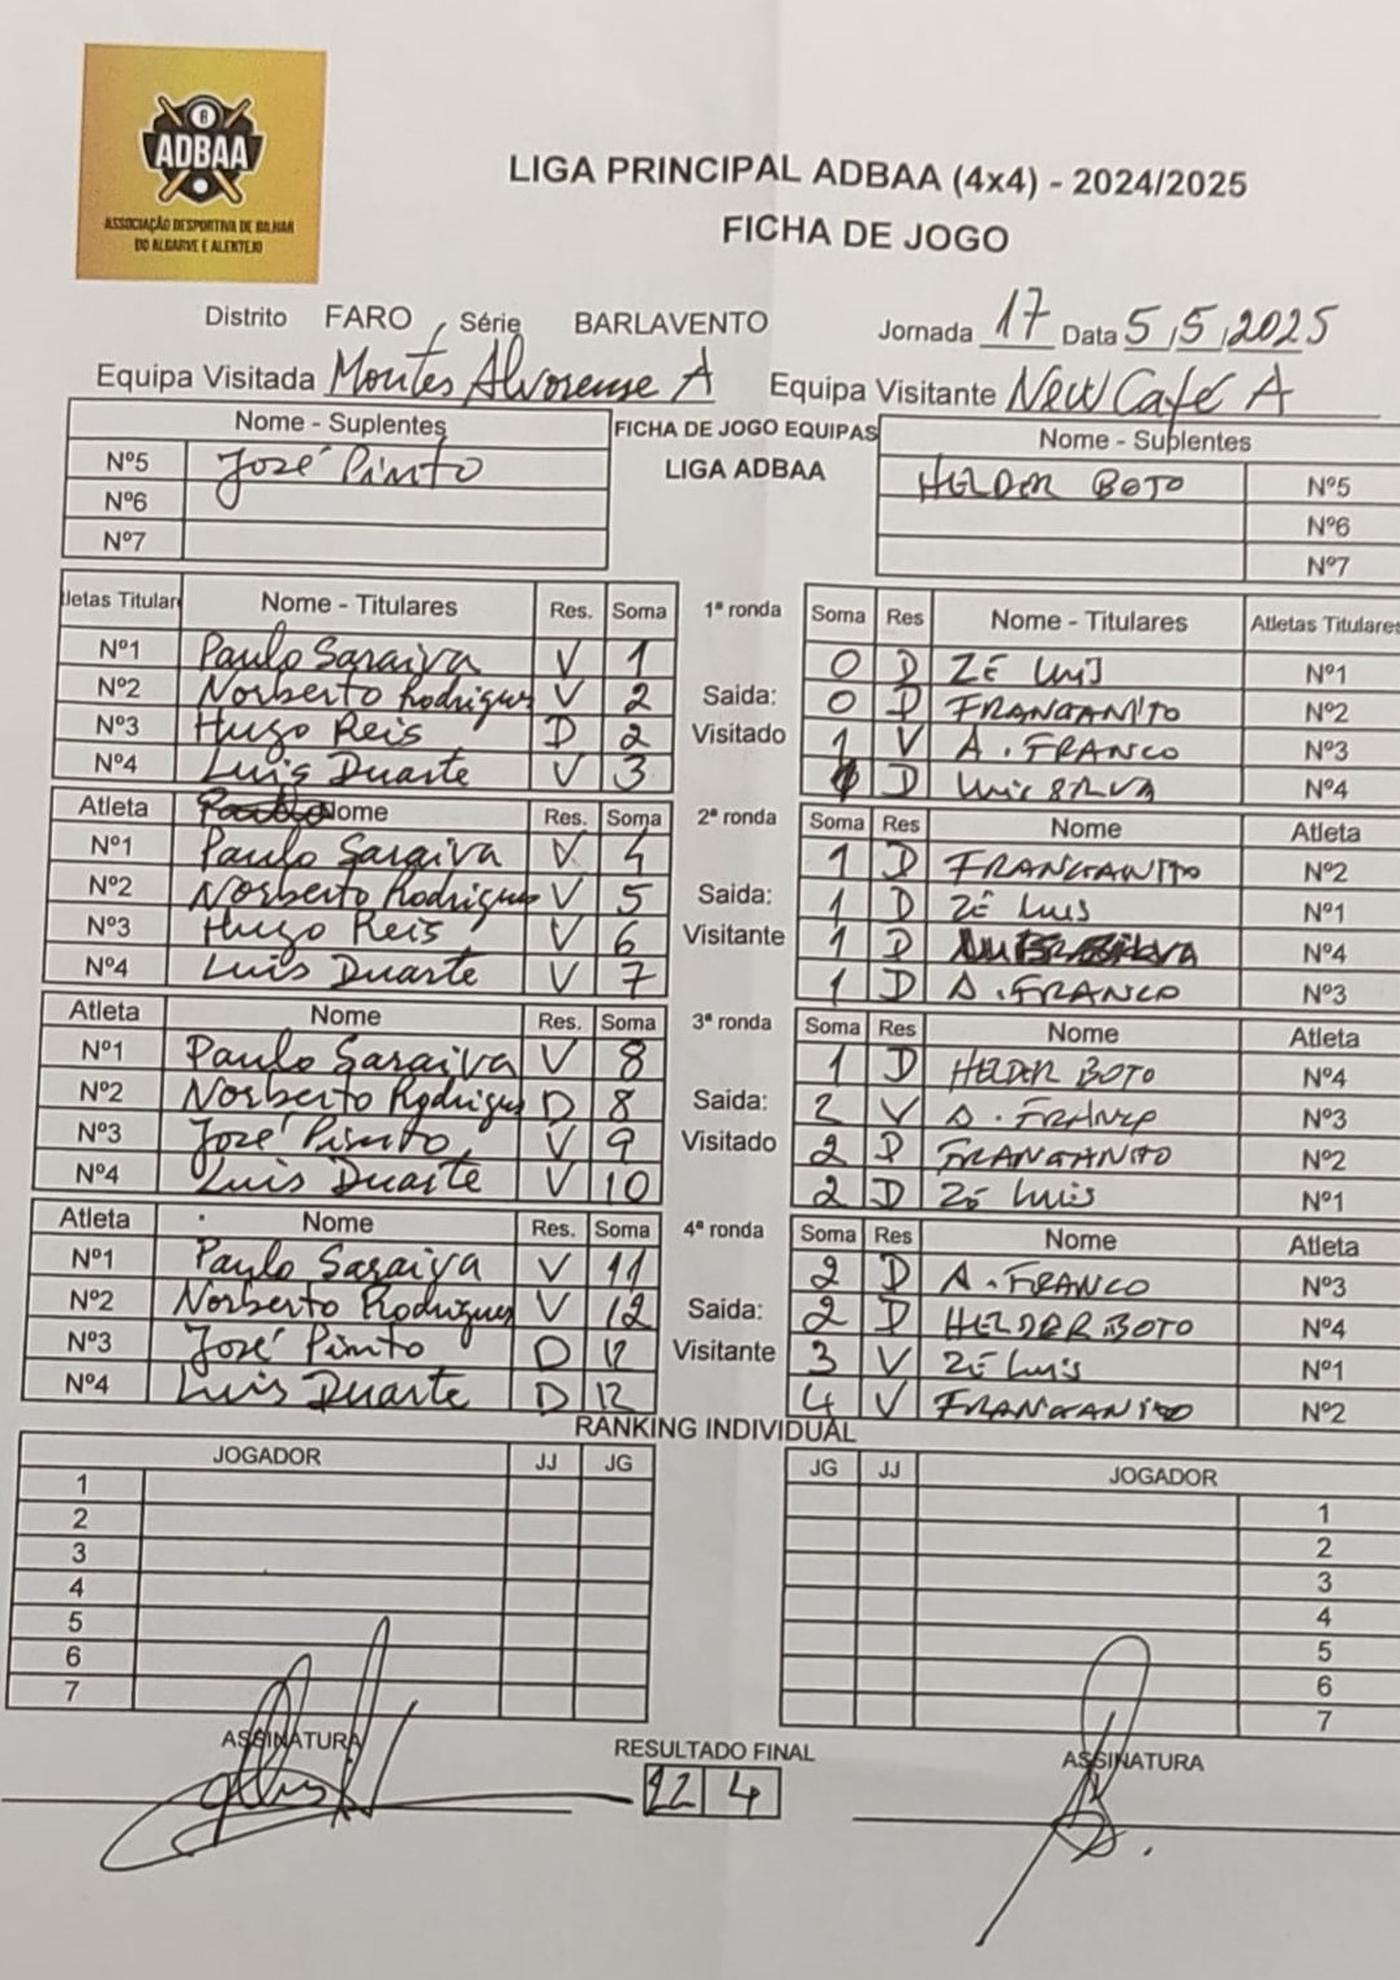 8
ADBAA
ASSOCIAÇÃO DESPORTIVA DE BILHAR
DO ALGARVE E ALENTEJO
LIGA PRINCIPAL ADBAA (4x4) - 2024/2025
FICHA DE JOGO
Distrito FARO Série BARLAVENTO Jornada 17 Data 5/5/2025
Equipa Visitada Montes Alvorense A Equipa Visitante New Café A
Nome - Suplentes FICHA DE JOGO EQUIPAS Nome - Suplentes
Nº5 José Pinto LIGA ADBAA HELDER BOTO Nº5
Nº6 Nº6
Nº7 Nº7
letas Titular Nome - Titulares Res. Soma 1ª ronda Soma Res Nome - Titulares Atletas Titulares
Nº1 Paulo Saraiva V 1 0 D ZÉ LUIS Nº1
Nº2 Norberto Rodrigues V 2 Saida: 0 D FRANGANITO Nº2
Nº3 Hugo Reis D 2 Visitado 1 V A. FRANCO Nº3
Nº4 Luis Duarte V 3 1 D Luis SILVA Nº4
Atleta Nome Res. Soma 2ª ronda Soma Res Nome Atleta
Nº1 Paulo Saraiva V 4 1 D FRANGANITO Nº2
Nº2 Norberto Rodrigues V 5 Saida: 1 D Zé Luis Nº1
Nº3 Hugo Reis V 6 Visitante 1 D Nº4
Nº4 Luis Duarte V 7 1 D A. FRANCO Nº3
Atleta Nome Res. Soma 3ª ronda Soma Res Nome Atleta
Nº1 Paulo Saraiva V 8 1 D HELDER BOTO Nº4
Nº2 Norberto Rodrigues D 8 Saida: 2 V A. FRANCO Nº3
Nº3 José Pinto V 9 Visitado 2 D FRANGANITO Nº2
Nº4 Luis Duarte V 10 2 D Zé Luis Nº1
Atleta Nome Res. Soma 4ª ronda Soma Res Nome Atleta
Nº1 Paulo Saraiva V 11 2 D A. FRANCO Nº3
Nº2 Norberto Rodrigues V 12 Saida: 2 D HELDER BOTO Nº4
Nº3 José Pinto D 12 Visitante 3 V ZÉ Luis Nº1
Nº4 Luis Duarte D 12 4 V FRANGANITO Nº2
RANKING INDIVIDUAL
JOGADOR JJ JG JG JJ JOGADOR
1 1
2 2
3 3
4 4
5 5
6 6
7 7
ASSINATURA RESULTADO FINAL ASSINATURA
12 4